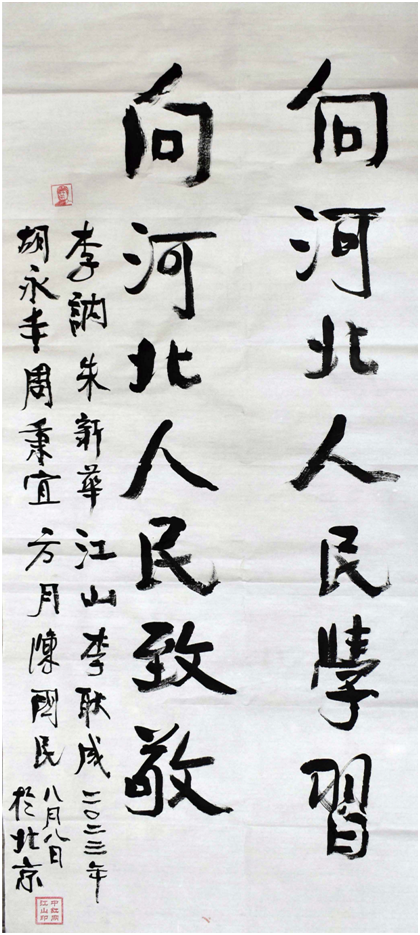 向河北人民學習
向河北人民致敬
李訥 朱新華 江山 李耿成 二〇二三年
胡永丰 周秉宜 方月 陳國民 八月八日
於北京